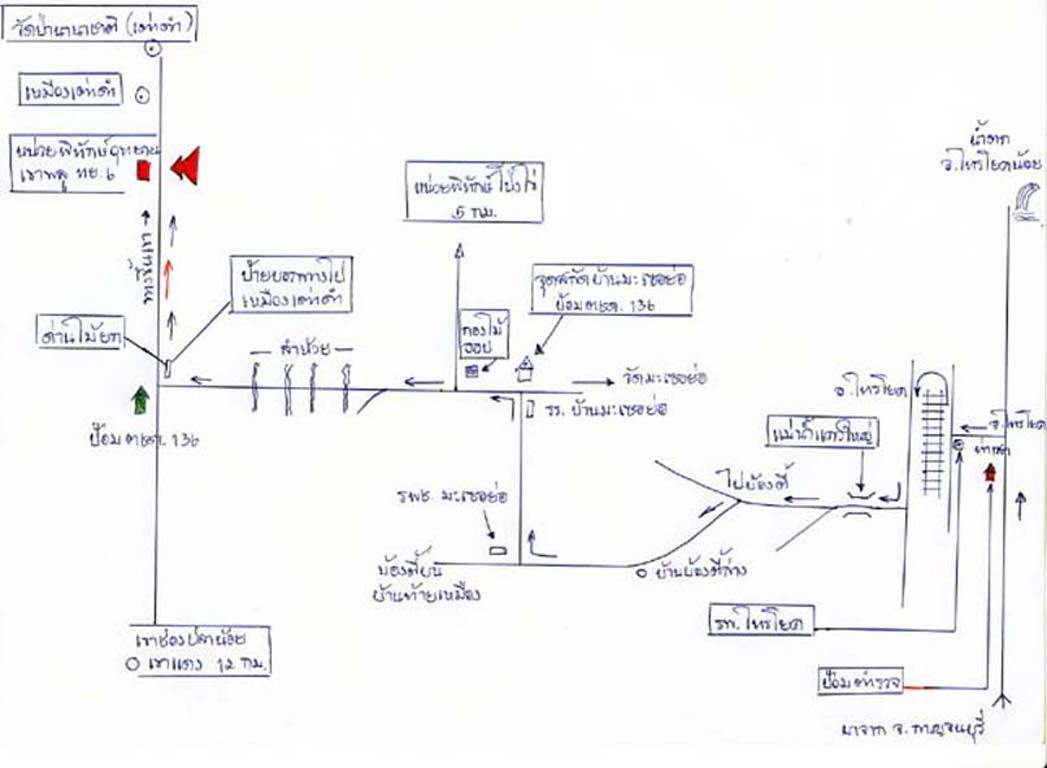 วัดป่านานาชาติ (เต่าดำ)
เหมืองเต่าดำ
หน่วยพิทักษ์อุทยาน
เขาพลู ทย. 6
น้ำตก
อ.ไทรโยคน้อย
หน่วยพิทักษ์โป่งไร่
5 กม.
ป้ายบอกทางไป
เหมืองเต่าดำ
จุดสกัดบ้านมะเซอย่อ
ป้อม ตชด. 136
ด่านไม้ยก
ลำห้วย
กองไม้
วัดมะเซอย่อ
อ.ไทรโยค
รร. บ้านมะเซอย่อ
อ.ไทรโยค
ป้อม ตชด. 136
แม่น้ำแควใหญ่
ไปบ้องตี้
รพช. มะเซอย่อ
บ้องตี้บน
บ้านท้ายเหมือง
บ้านบ้องตี้ล่าง
รพ. ไทรโยค
เขาช่องปลาน้อย
เขาแดง 12 กม.
ป้อมตำรวจ
มาจาก จ. กาญจนบุรี